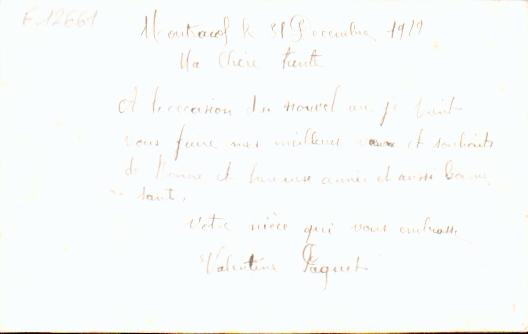 F.12661
Montracol le 31 Decembre 1919
Ma Chère tente
A l'occasion du nouvel an je vient
vous faire mes meilleurs vœux et souhaits
de Bonne et heureuse année et aussi bonne
santé,
votre nièce qui vous embrasse
Valentine Paquet